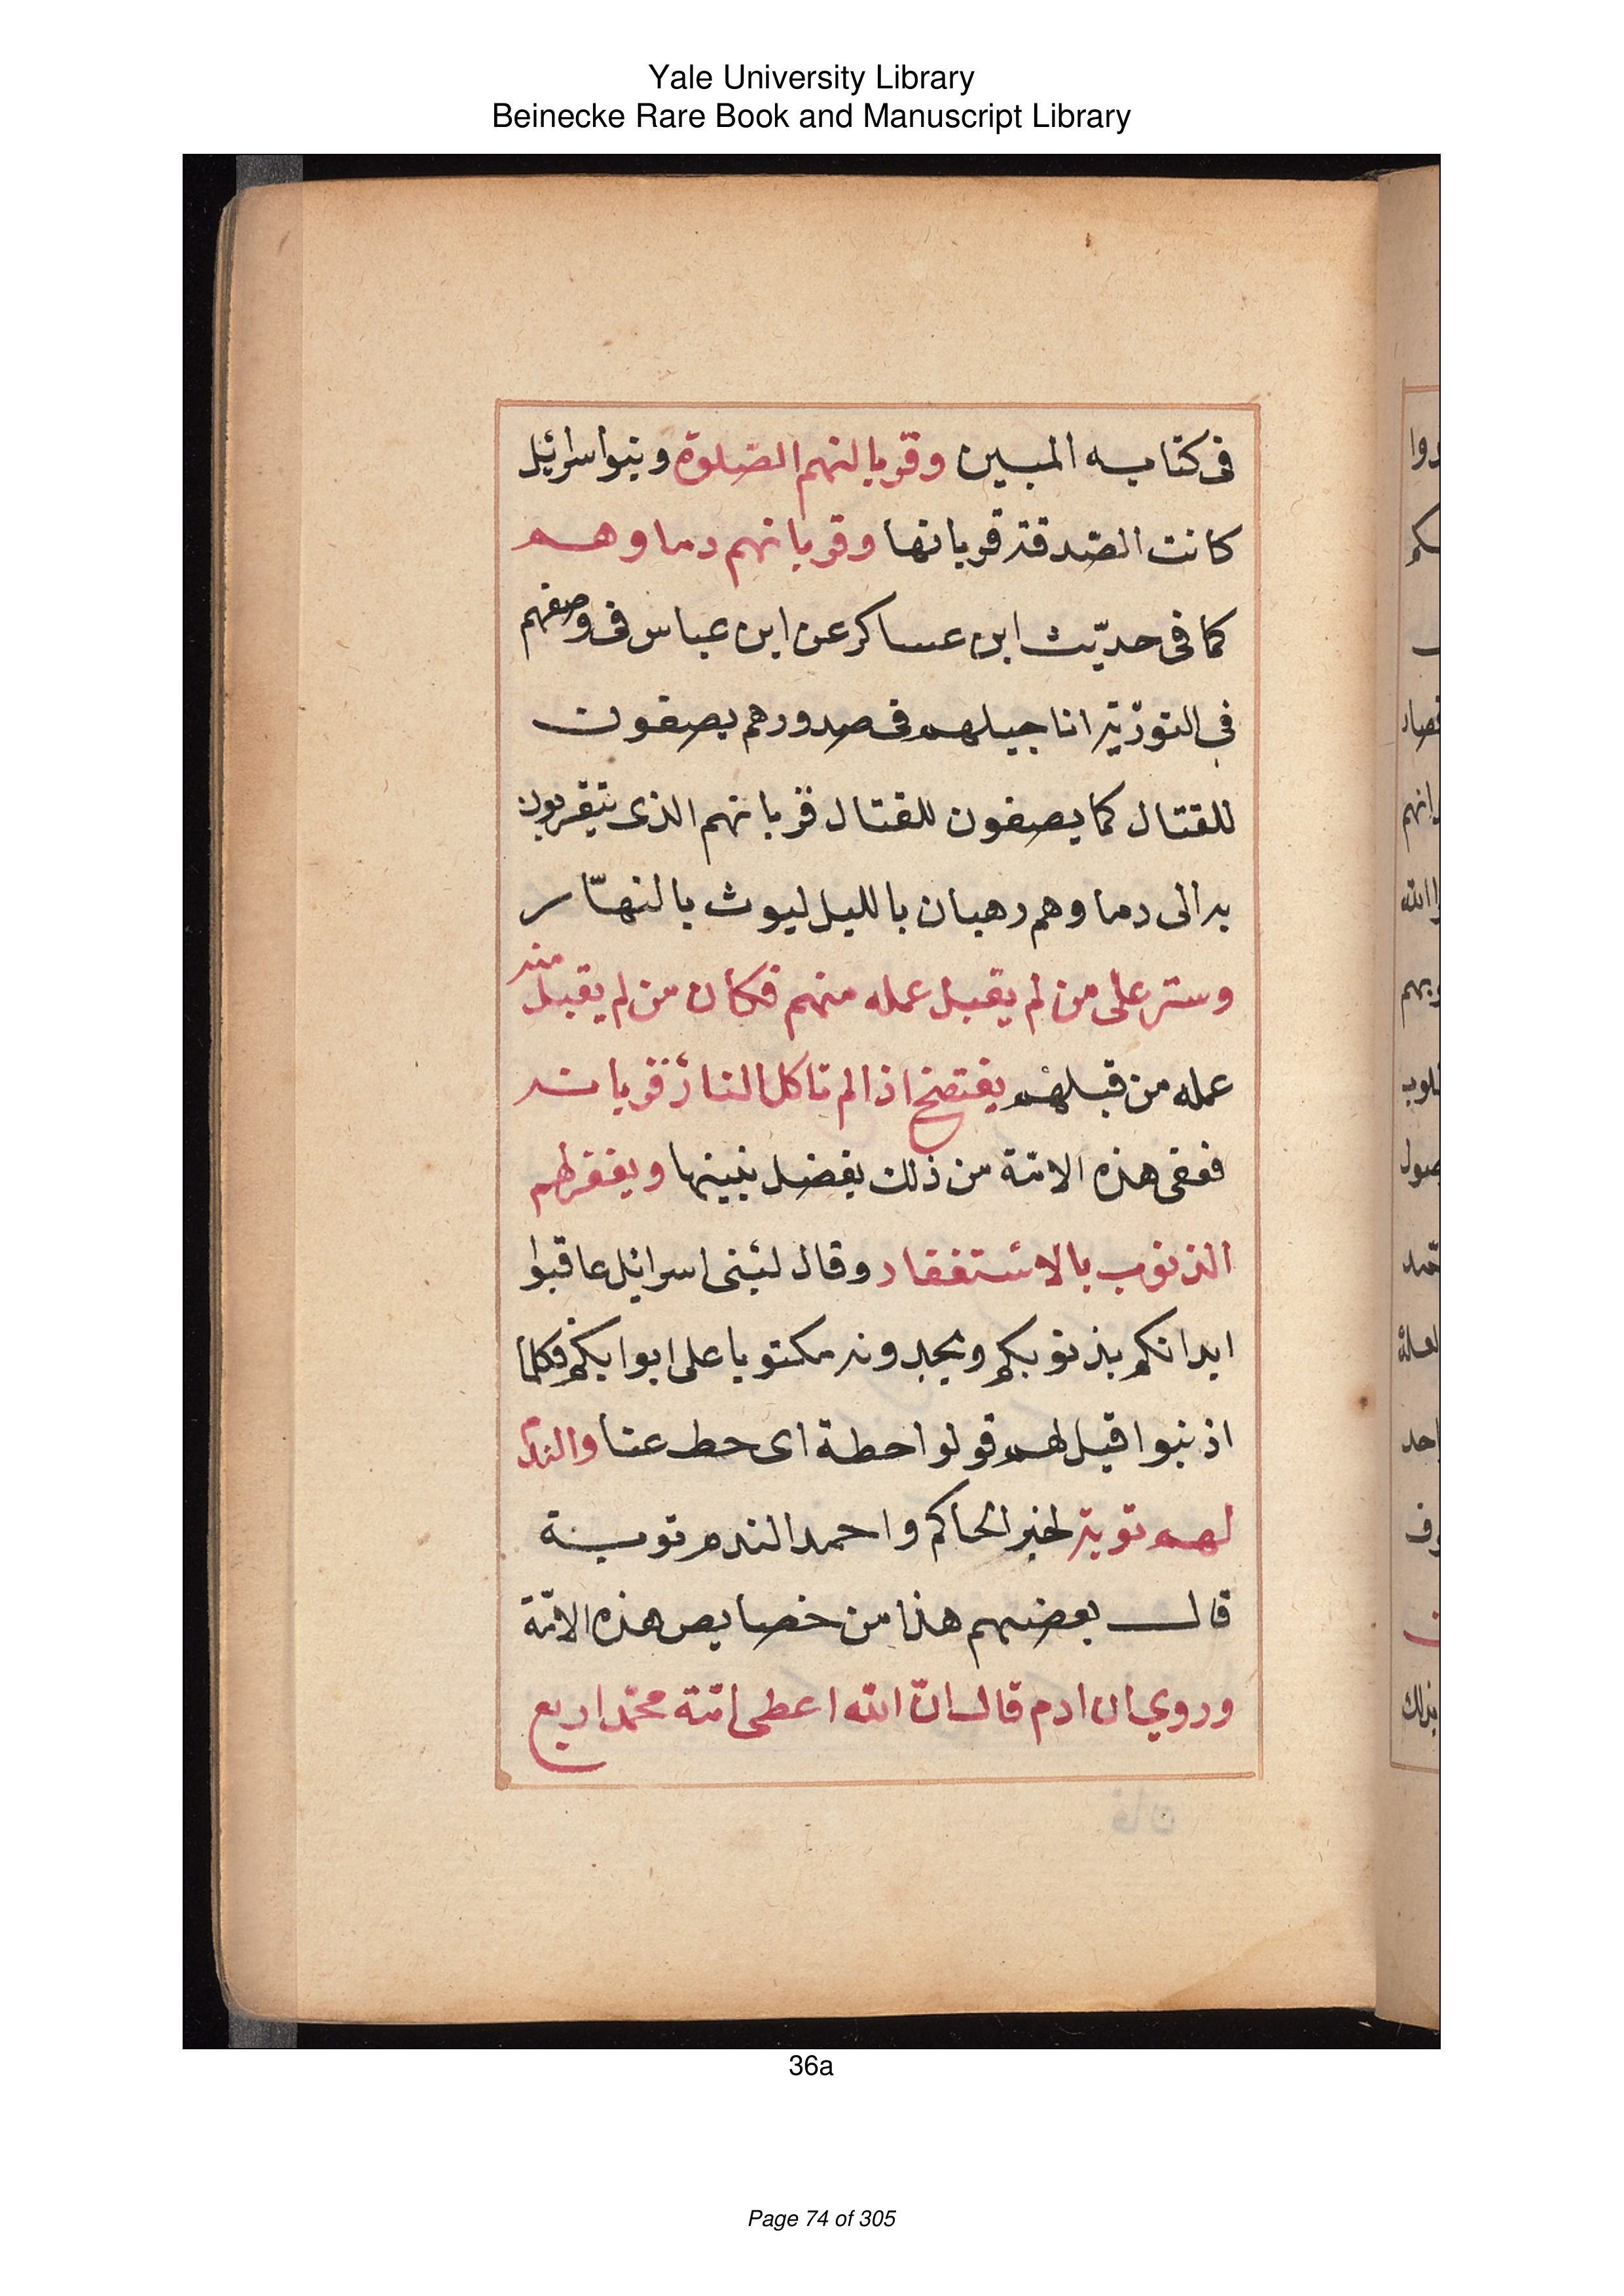 Yale University Library
Beinecke Rare Book and Manuscript Library
فى كتابه المبين وقربانهم الصّلوة وبنوا سرائيل
كانت الصّدقة قربانها وقربانهم دماوهم
كما فى حديّث ابن عساكر عن ابن عباس فى وصفهم
في التورٰية اناجيلهم فى صدورهم يصفون
للقتال كما يصفون للقتال قربانهم الذى يتقربون
به الى دماوهم رهبان بالليل ليوث بالنهّار
وستر على من لم يقبل عمله منهم فكان من لم يقبل منه
عمله من قبلهم يفتضح اذا لم تاكل النار قربانه
ففى هذه الامّة من ذلك بفضل نبينها ويغفر لهم
الذنوب بالاستغفار وقال لبنى اسرائل عاقبوا
ابدانكم بذنوبكم ويجدونه مكتوبا على ابوابكم فكلما
اذنبوا قيل لهم قولوا حطة اى حط عنا والندم
لهم توبة لخبر الحاكم واحمد الندم توبة
قال بعضهم هذا من خصايص هذه الامّة
وروي ان ادم قال انّ الله اعطى امّة محمّد اربع
36a
Page 74 of 305